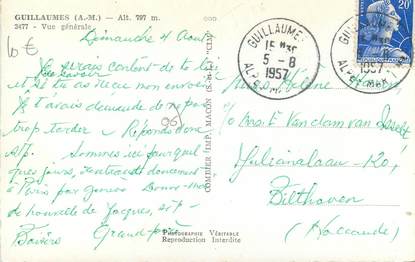 GUILLAUMES (A.-M.) — Alt. 797 m.
2477 - Vue générale
10 €
Dimanche 4 Août
Je serais content de te lire
et savoir
si tu as reçu mon envoi
Je t'avais demandé de ne pas
trop tarder. Réponds donc
s/p. Sommes ici pour quel-
ques jours, rentrerons doucement
à Paris par
Donne-moi
de nouvelle de Jacques, s.t.p.
Baisers Grand-père
96
COMBIER IMP. MACON (S.-&-L.) "CIM"
PHOTOGRAPHIE VÉRITABLE
Reproduction Interdite
GUILLAUMES
15 H 30
5-8
1957
ALPES-MMES
GUILLAUMES
1957
ALPES-MMES
20F
Hélène
Van Dam van
Julianalaan
Bilthoven
(Hollande)